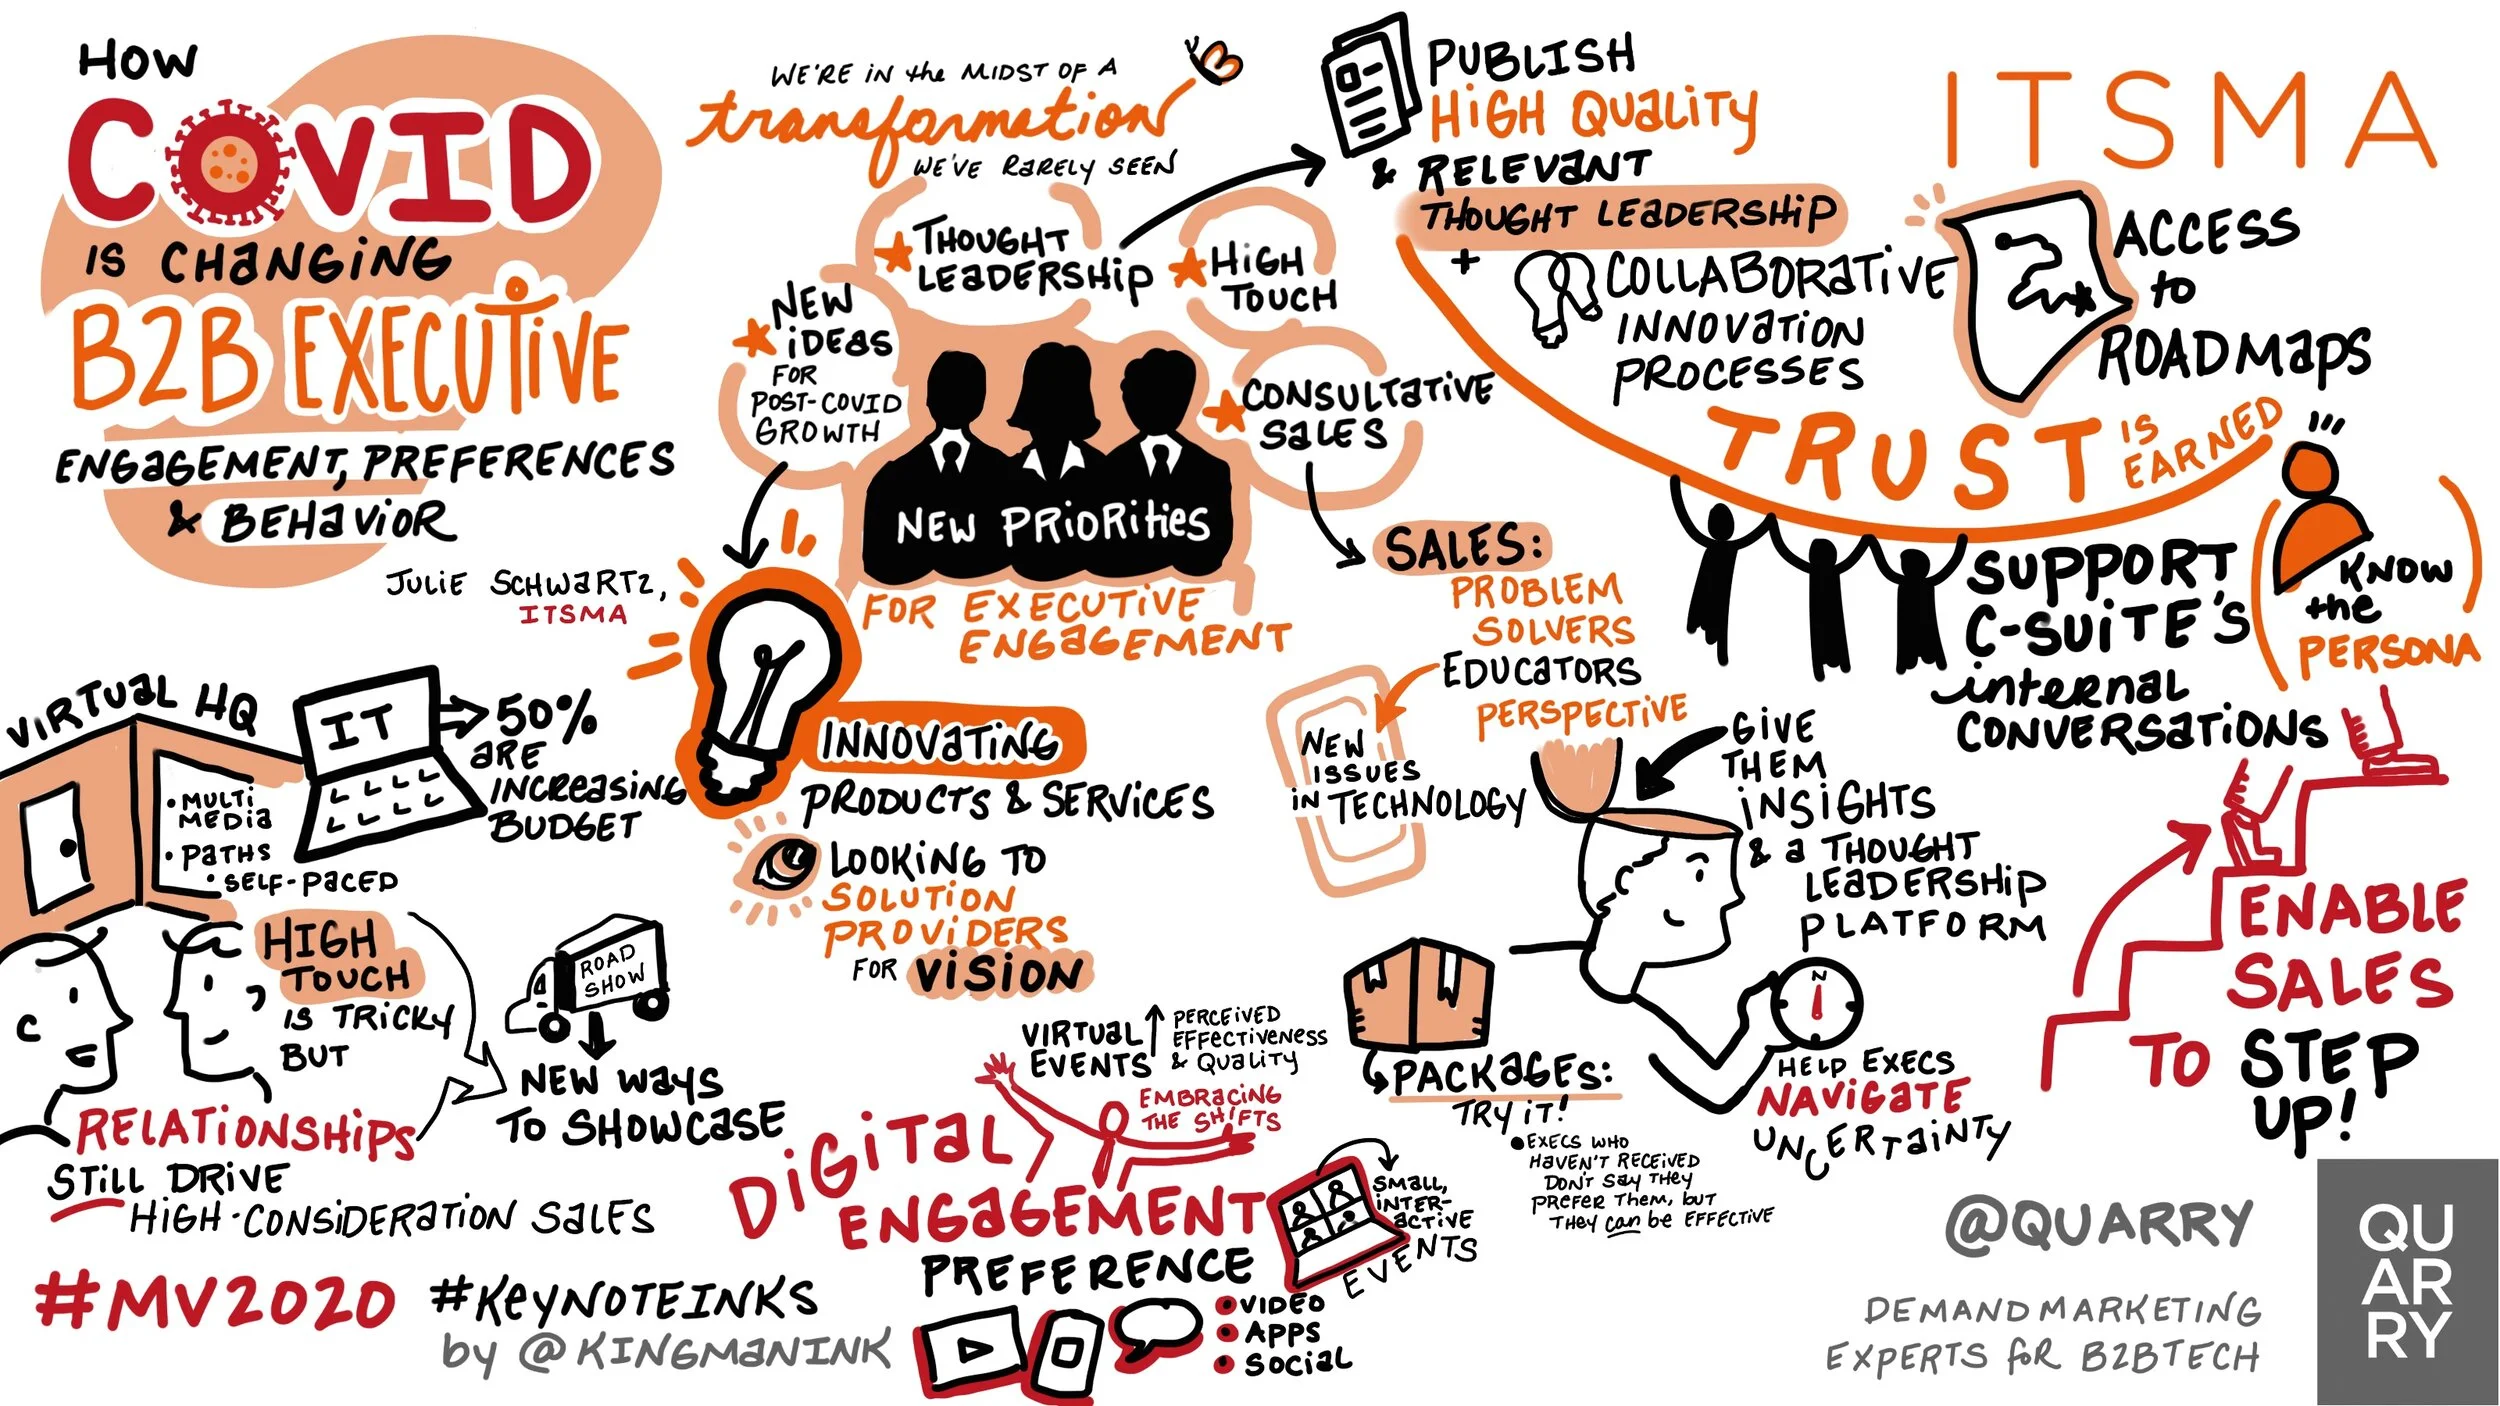 HOW
COVID
IS CHANGING
B2B EXECUTIVE
ENGAGEMENT, PREFERENCES
& BEHAVIOR
JULIE SCHWARTZ,
ITSMA
WE'RE IN the MIDST OF A
transformation
WE'VE RARELY SEEN
THOUGHT
LEADERSHIP
HIGH
TOUCH
NEW
IDEAS
FOR
POST-COVID
GROWTH
CONSULTATIVE
SALES
NEW PRIORITIES
FOR EXECUTIVE
ENGAGEMENT
PUBLISH
HIGH QUALITY
& RELEVANT
THOUGHT LEADERSHIP
+ COLLABORATIVE
INNOVATION
PROCESSES
ITSMA
ACCESS
to
ROADMAPS
TRUST IS
EARNED
SUPPORT
C-SUITE'S
internal
CONVERSATIONS
KNOW
the
PERSONA
SALES:
PROBLEM
SOLVERS
EDUCATORS
PERSPECTIVE
NEW
ISSUES
IN TECHNOLOGY
GIVE
THEM
INSIGHTS
& a THOUGHT
LEADERSHIP
PLATFORM
N
HELP EXECS
NAVIGATE
UNCERTAINTY
ENABLE
SALES
TO STEP
UP!
VIRTUAL HQ
• MULTI
MEDIA
• PATHS
• SELF-PACED
IT
50%
ARE
INCREASING
BUDGET
INNOVATING
PRODUCTS & SERVICES
LOOKING TO
SOLUTION
PROVIDERS
FOR VISION
HIGH
TOUCH
IS TRICKY
BUT
RELATIONSHIPS
STILL DRIVE
HIGH-CONSIDERATION SALES
ROAD
SHOW
NEW WAYS
TO SHOWCASE
VIRTUAL
EVENTS
PERCEIVED
EFFECTIVENESS
& QUALITY
EMBRACING
THE SHIFTS
DIGITAL
ENGAGEMENT
PREFERENCE
SMALL,
INTER-
ACTIVE
EVENTS
• VIDEO
• APPS
• SOCIAL
PACKAGES:
TRY IT!
• EXECS WHO
HAVEN'T RECEIVED
DON'T SAY THEY
PREFER THEM, BUT
THEY can be EFFECTIVE
#MV2020 #KEYNOTEINKS
by @KINGMANINK
@QUARRY
DEMAND MARKETING
EXPERTS for B2BTECH
QU
AR
RY